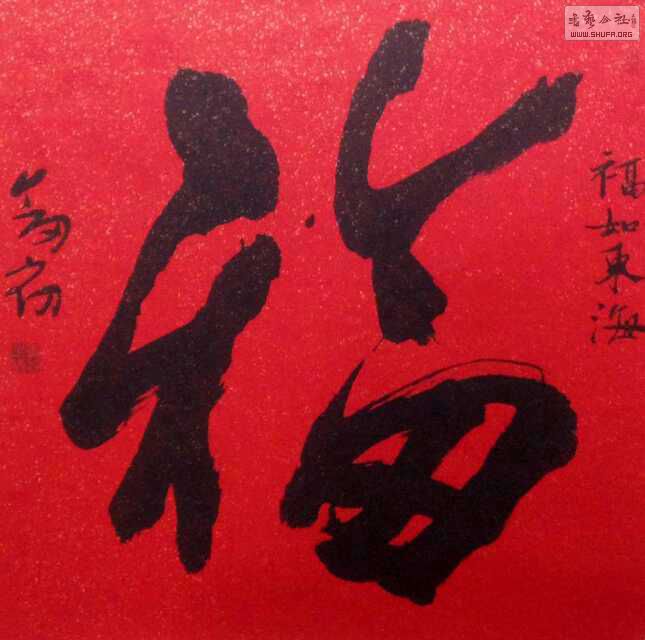 書藝公社
WWW.SHUFA.ORG
福如東海
福